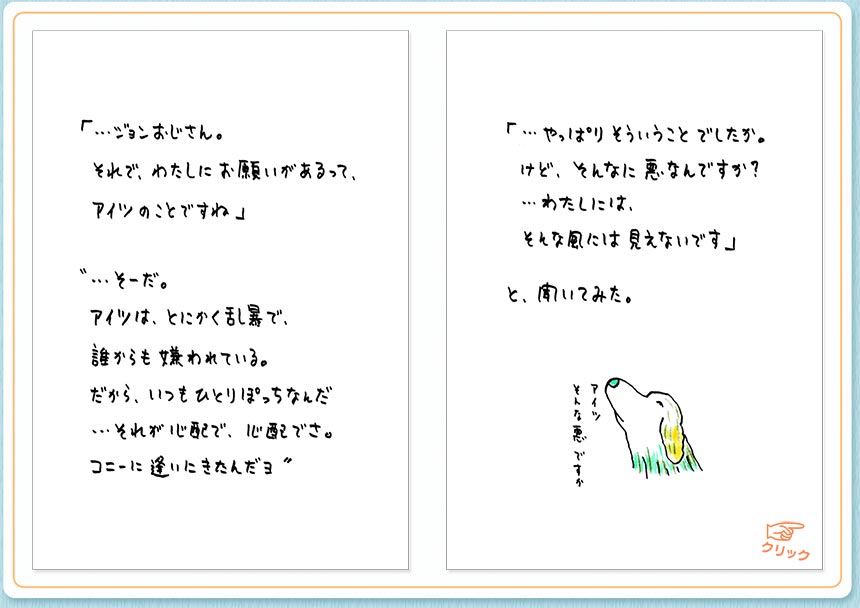 「…ジョンおじさん。
それで、わたしにお願いがあるって、
アイツのことですね」
〝…そーだ。
アイツは、とにかく乱暴で、
誰からも嫌われている。
だから、いつもひとりぽっちなんだ
…それが心配で、心配でさ。
コニーに逢いにきたんだヨ〞
「…やっぱりそういうことでしたか。
けど、そんなに悪なんですか?
…わたしには、
そんな風には見えないです」
と、聞いてみた。
アイツ
そんな悪ですか
クリック